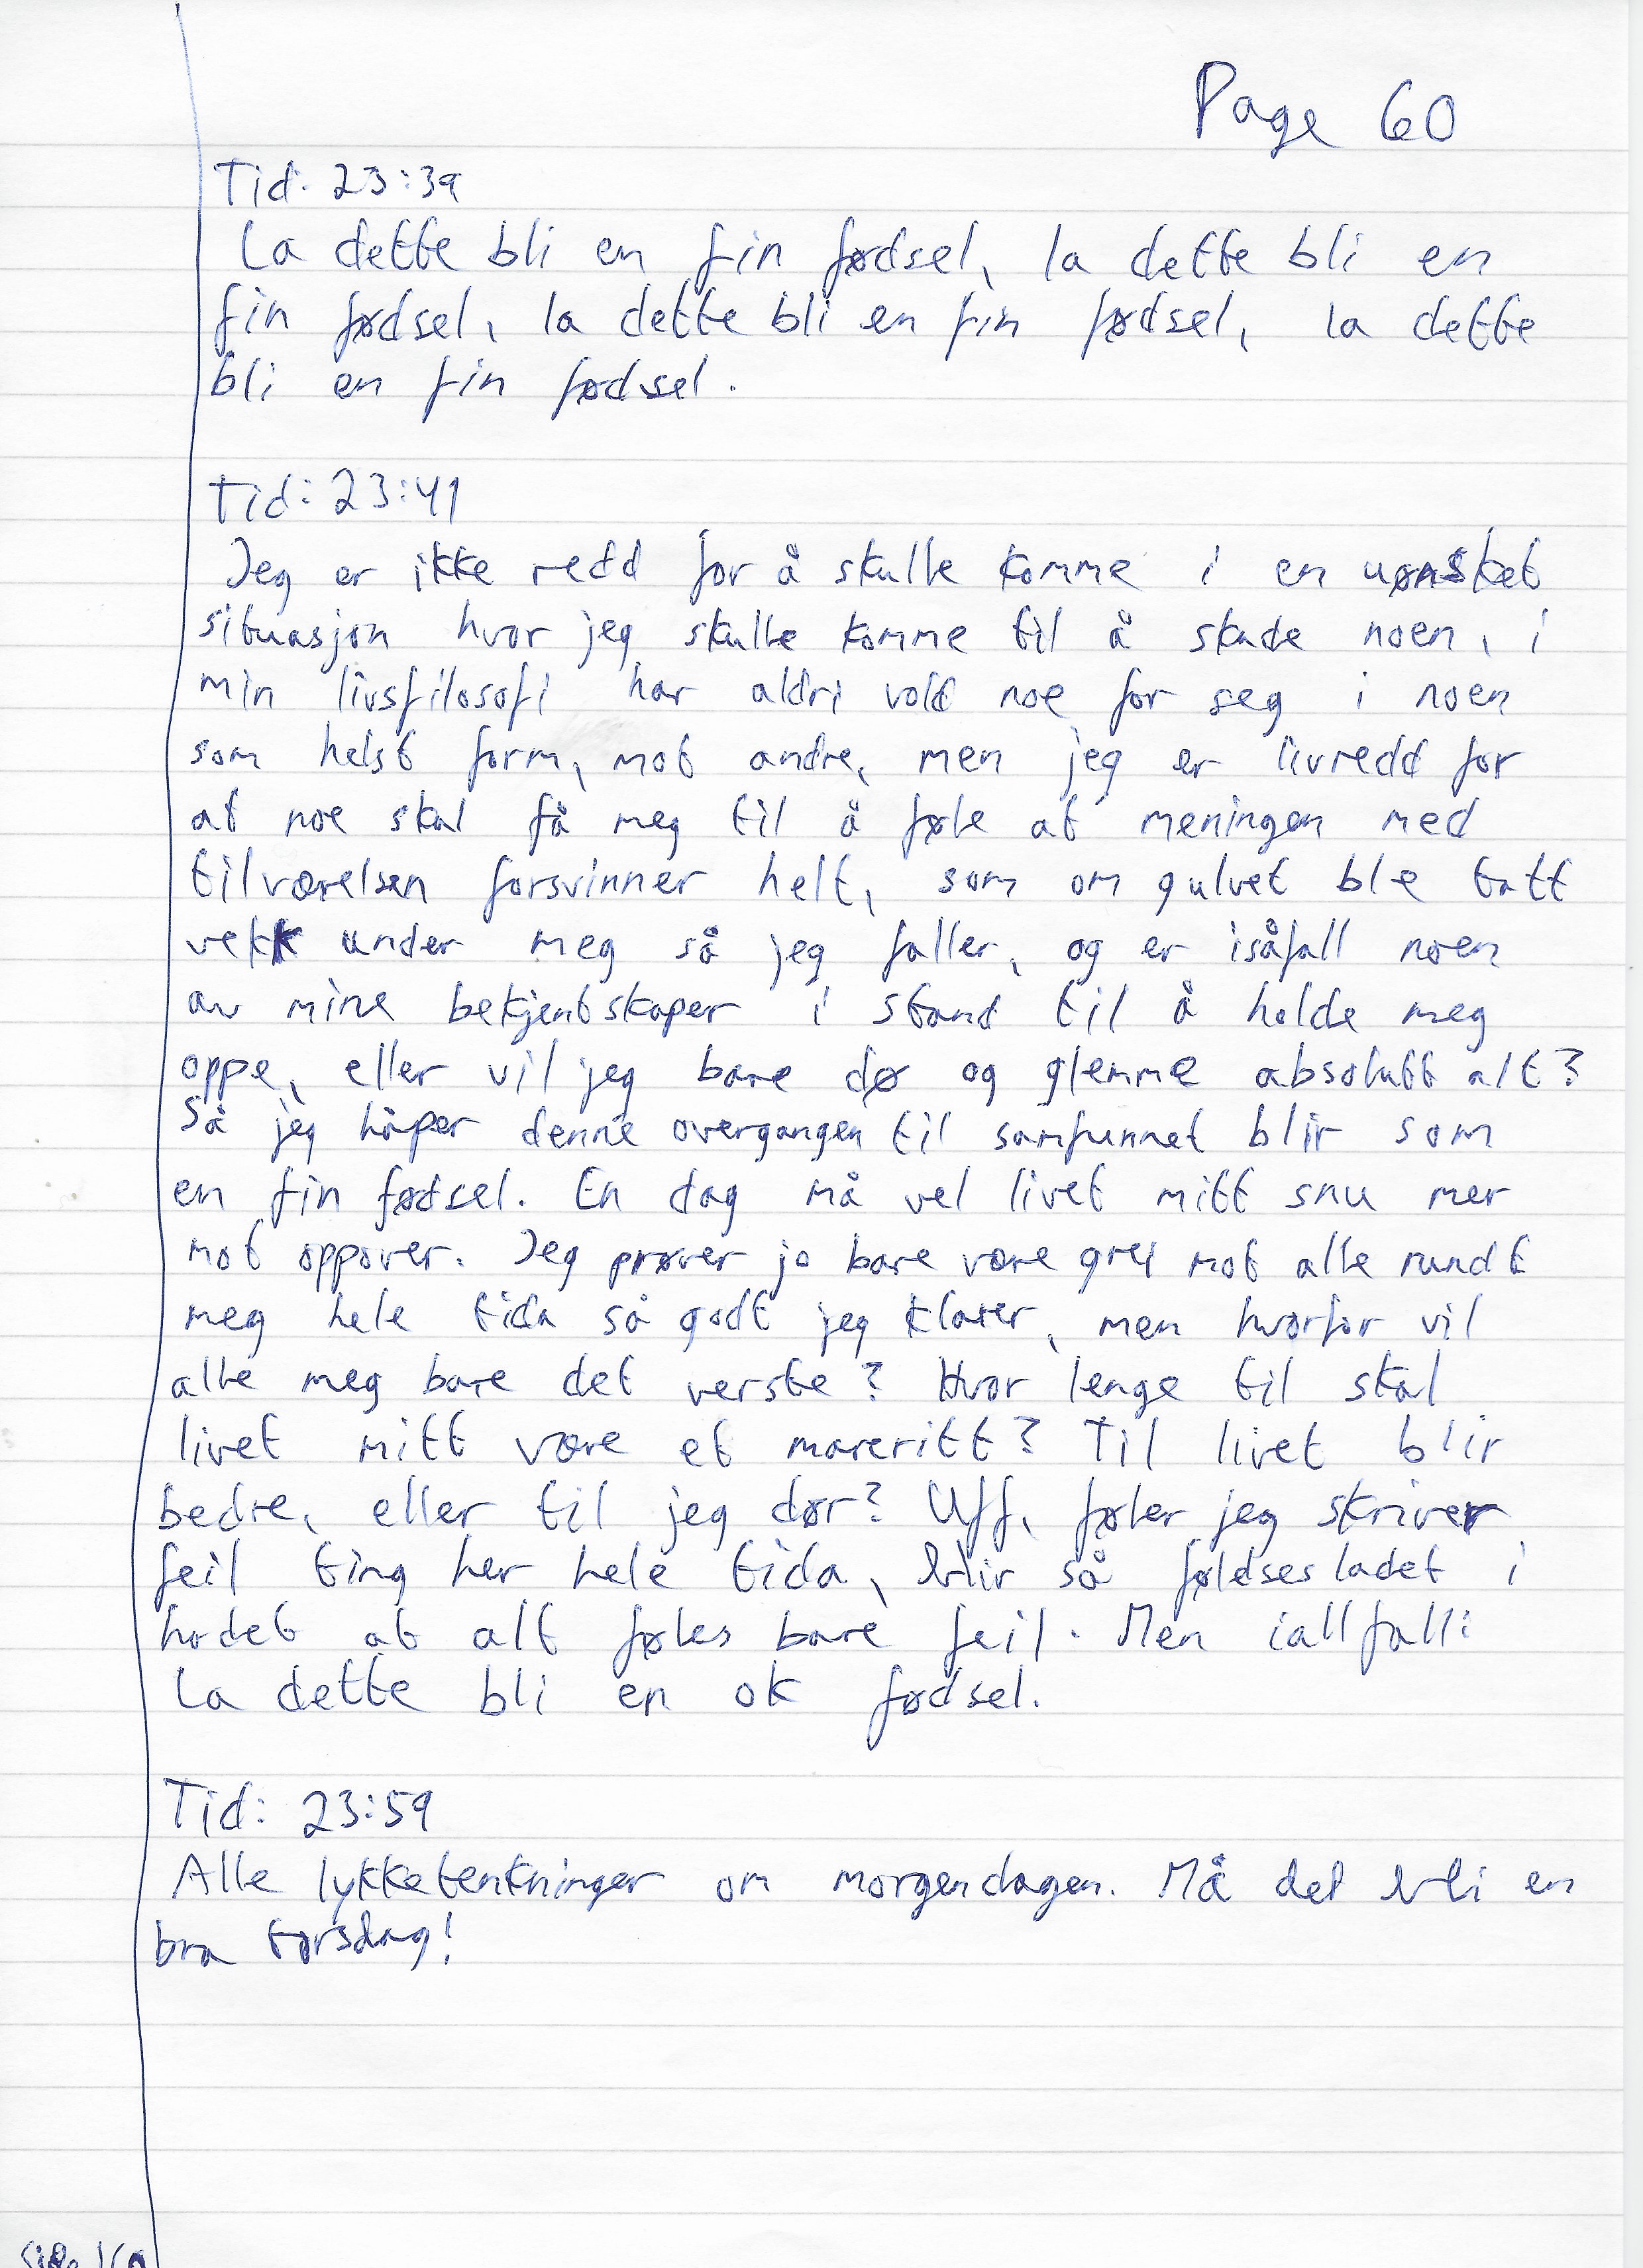 Page 60
Tid: 23:39
La dette bli en fin fødsel, la dette bli en
fin fødsel, la dette bli en fin fødsel, la dette
bli en fin fødsel.
Tid: 23:41
Jeg er ikke redd for å skulle komme i en uønsket
situasjon hvor jeg skulle komme til å skade noen, i
min livsfilosofi har aldri vold noe for seg i noen
som helst form, mot andre, men jeg er livredd for
at noe skal få meg til å føle at meningen med
tilværelsen forsvinner helt, som om gulvet ble tatt
vekk under meg så jeg faller, og er isåfall noen
av mine bekjentskaper i stand til å holde meg
oppe, eller vil jeg bare dø og glemme absolutt alt?
Så jeg håper denne overgangen til samfunnet blir som
en fin fødsel. En dag må vel livet mitt snu mer
mot oppover. Jeg prøver jo bare være grei mot alle rundt
meg hele tida så godt jeg klarer, men hvorfor vil
alle meg bare det verste? Hvor lenge til skal
livet mitt være et mareritt? Til livet blir
bedre, eller til jeg dør? Uff, føler jeg skriver
feil ting her hele tida, blir så føldsesladet i
hodet at alt føles bare feil. Men iallfall:
La dette bli en ok fødsel.
Tid: 23:59
Alle lykketenkninger om morgendagen. Må det bli en
bra torsdag!